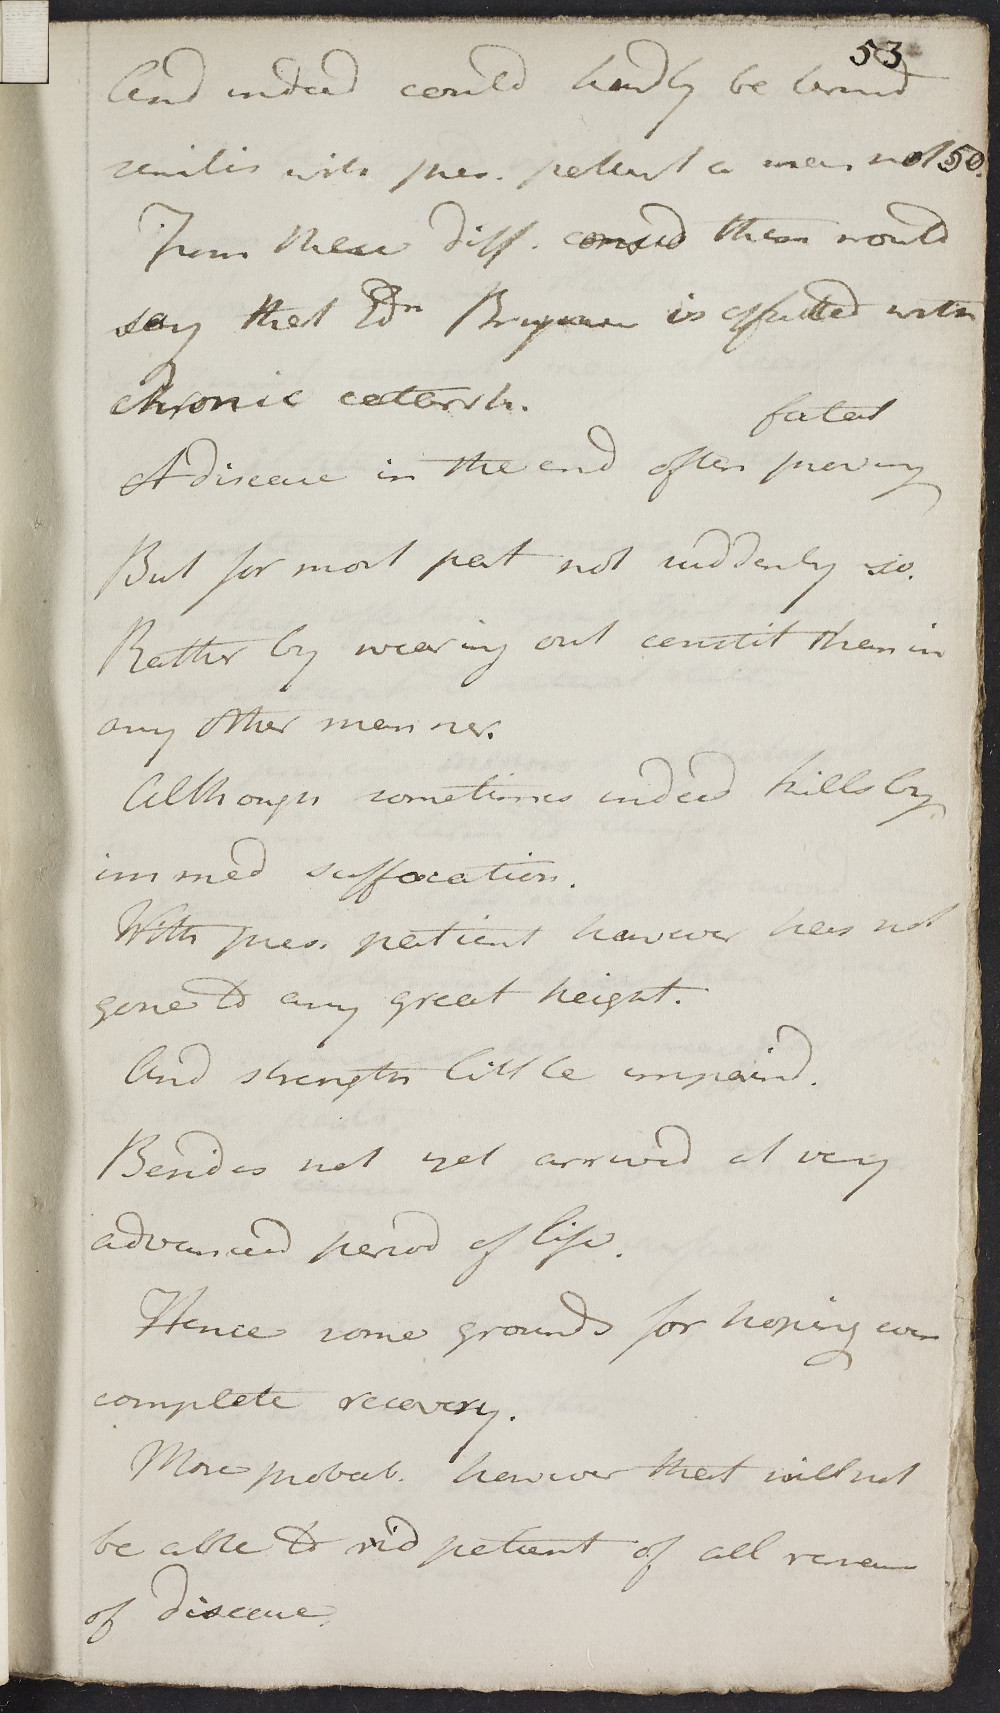 53
And indeed could hardly be termd
senilis with pres. patient a man not 50.
From these diff. consid then would
say that Edn is afflicted with
chronic catarrh.
fatal
A disease in the end often proving
But for most part not suddenly so.
Rather by wearing out constit than in
any other manner.
Although sometimes indeed kills by
immed suffocation.
With pres. patient however has not
gone to any great height.
And strength little impaird.
Besides not yet arrived at very
advanced period of life.
Hence some grounds for hoping even
complete recovery.
More probab. however that will not
be able to rid patient of all remn
of disease.